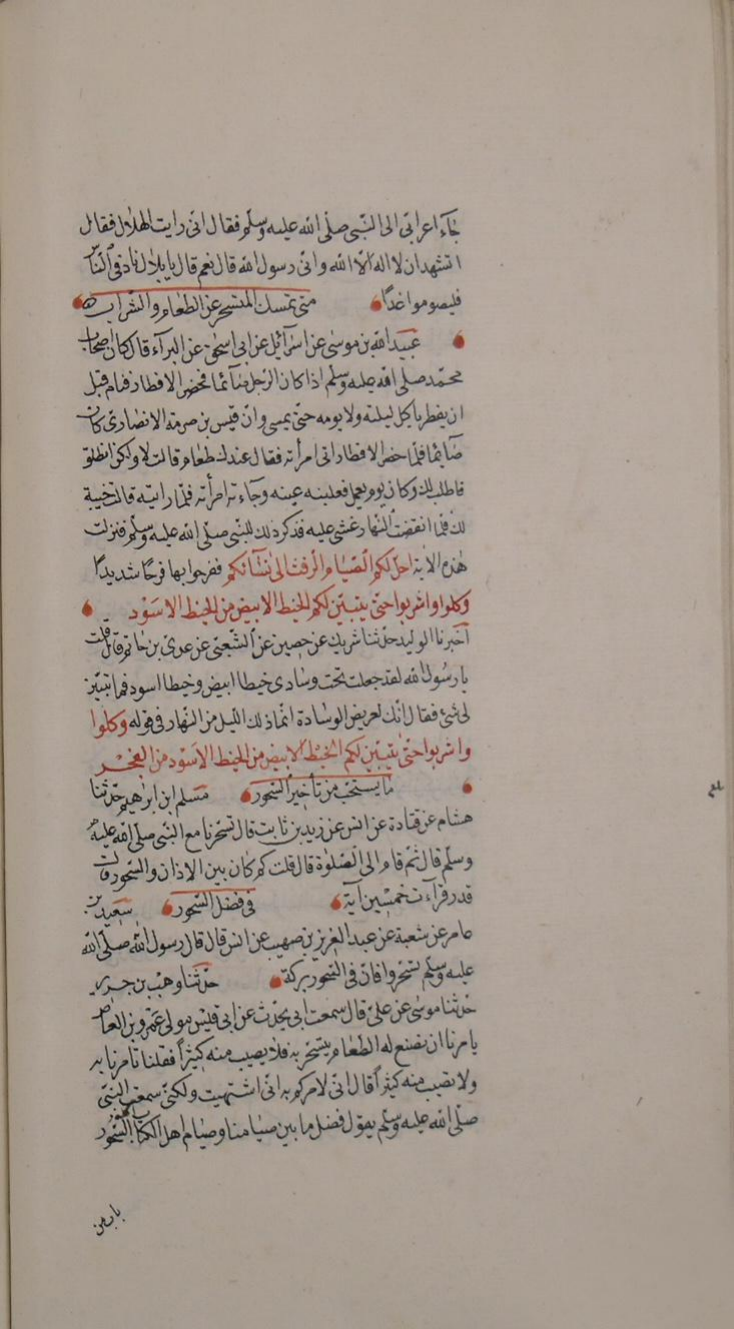 جاء اعرابى الى النبى صلى الله عليه وسلم فقال انى رايت الهلال فقال
اتشهد ان لا اله الا الله وانى رسول الله قال نعم قال يا بلال ناد فى الناس
فليصوموا غدا متى يمسك المتسحر عن الطعام والشراب
عبيد الله بن موسى عن اسرآئيل عن ابى اسحق عن البرآء قال كان اصحاب
محمد صلى الله عليه وسلم اذا كان الرجل صآئما فحضر الافطار فنام قبل
ان يفطر لم ياكل ليلته ولا يومه حتى يمسى وان قيس بن صرمة الانصارى كان
صآيما فلما حضر الافطار اتى امرأته فقال عندك طعام قالت لا ولكن انطلق
فاطلب لك وكان يومه يعمل فغلبته عينه وجاءته امرأته فلما راته قالت خيبة
لك فلما انتصف النهار غشى عليه فذكر ذلك للنبى صلى الله عليه وسلم فنزلت
هذه الاية احل لكم ليلة الصيام الرفث الى نسآئكم ففرحوا بها فرحا شديدا
وكلوا واشربوا حتى يتبين لكم الخيط الابيض من الخيط الاسود
اخبرنا ابو الوليد حدثنا شريك عن حصين عن الشعبى عن عدى بن حاتم قال قلت
يا رسول الله لقد جعلت تحت وسادى خيطا ابيض وخيطا اسود فما تبين
لى شئ فقال انك لعريض الوسادة انما ذلك الليل من النهار فى قوله وكلوا
واشربوا حتى يتبين لكم الخيط الابيض من الخيط الاسود من الفجر
ما يستحب من تأخير السحور مسلم ابن ابراهيم حدثنا
هشام عن قتادة عن انس عن زيد بن ثابت قال تسحرنا مع النبى صلى الله عليه
وسلم قال ثم قام الى الصلوة قال قلت كم كان بين الاذان والسحور قال
قدر قرآءت خمسين آية فى فضل السحور سعيد بن
عامر عن شعبة عن عبد العزيز بن صهيب عن انس قال قال رسول الله صلى الله
عليه وسلم تسحروا فان فى السحور بركة حدثنا وهب بن جرير
حدثنا موسى عن على قال سمعت ابى يحدث عن ابى قيس مولى عمرو بن العاص
يامرنا ان نصنع له الطعام يتسحر به فلا يصيب منه كثيرا فقلنا تامرنا به
ولا تصيب منه كثيرا قال انى لا امركم به انى اشتهيت ولكنى سمعت النبى
صلى الله عليه وسلم يقول فضل ما بين صيامنا وصيام اهل الكتاب السحور
باب من